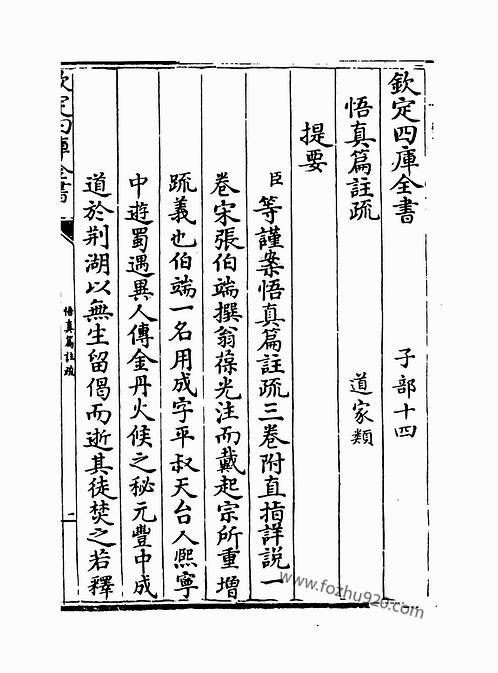 欽定四庫全書 子部十四
悟真篇註疏 道家類
提要
臣等謹案悟真篇註疏三卷附直指詳説一
卷宋張伯端撰翁葆光注而戴起宗所重增
疏義也伯端一名用成字平叔天台人熙寧
中遊蜀遇異人傳金丹火候之秘元豐中成
道於荆湖以無生留偈而逝其徒焚之若釋
欽定四庫全書
悟真篇註疏
一
www.fozhu920.com